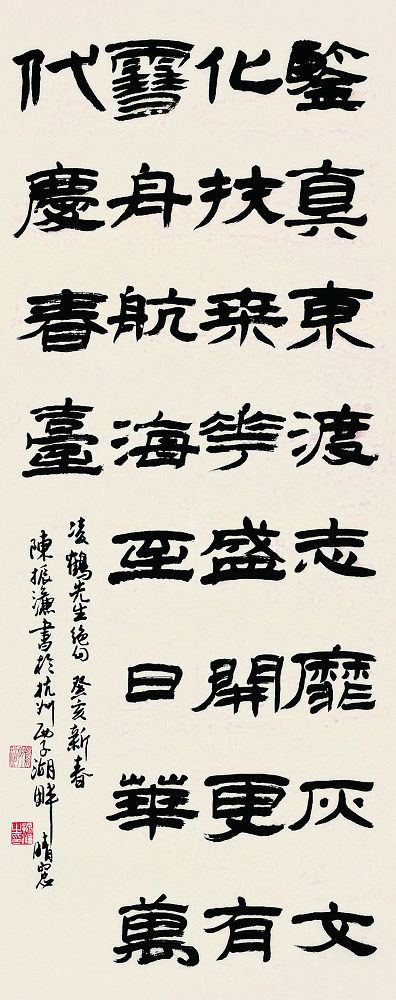 鑒真東渡志靡灰文
化扶桑花盛開更有
雪舟航海至日華萬
代慶春臺
凌鶴先生絕句 癸亥新春
陳振濂書於杭州西子湖畔 晴窗